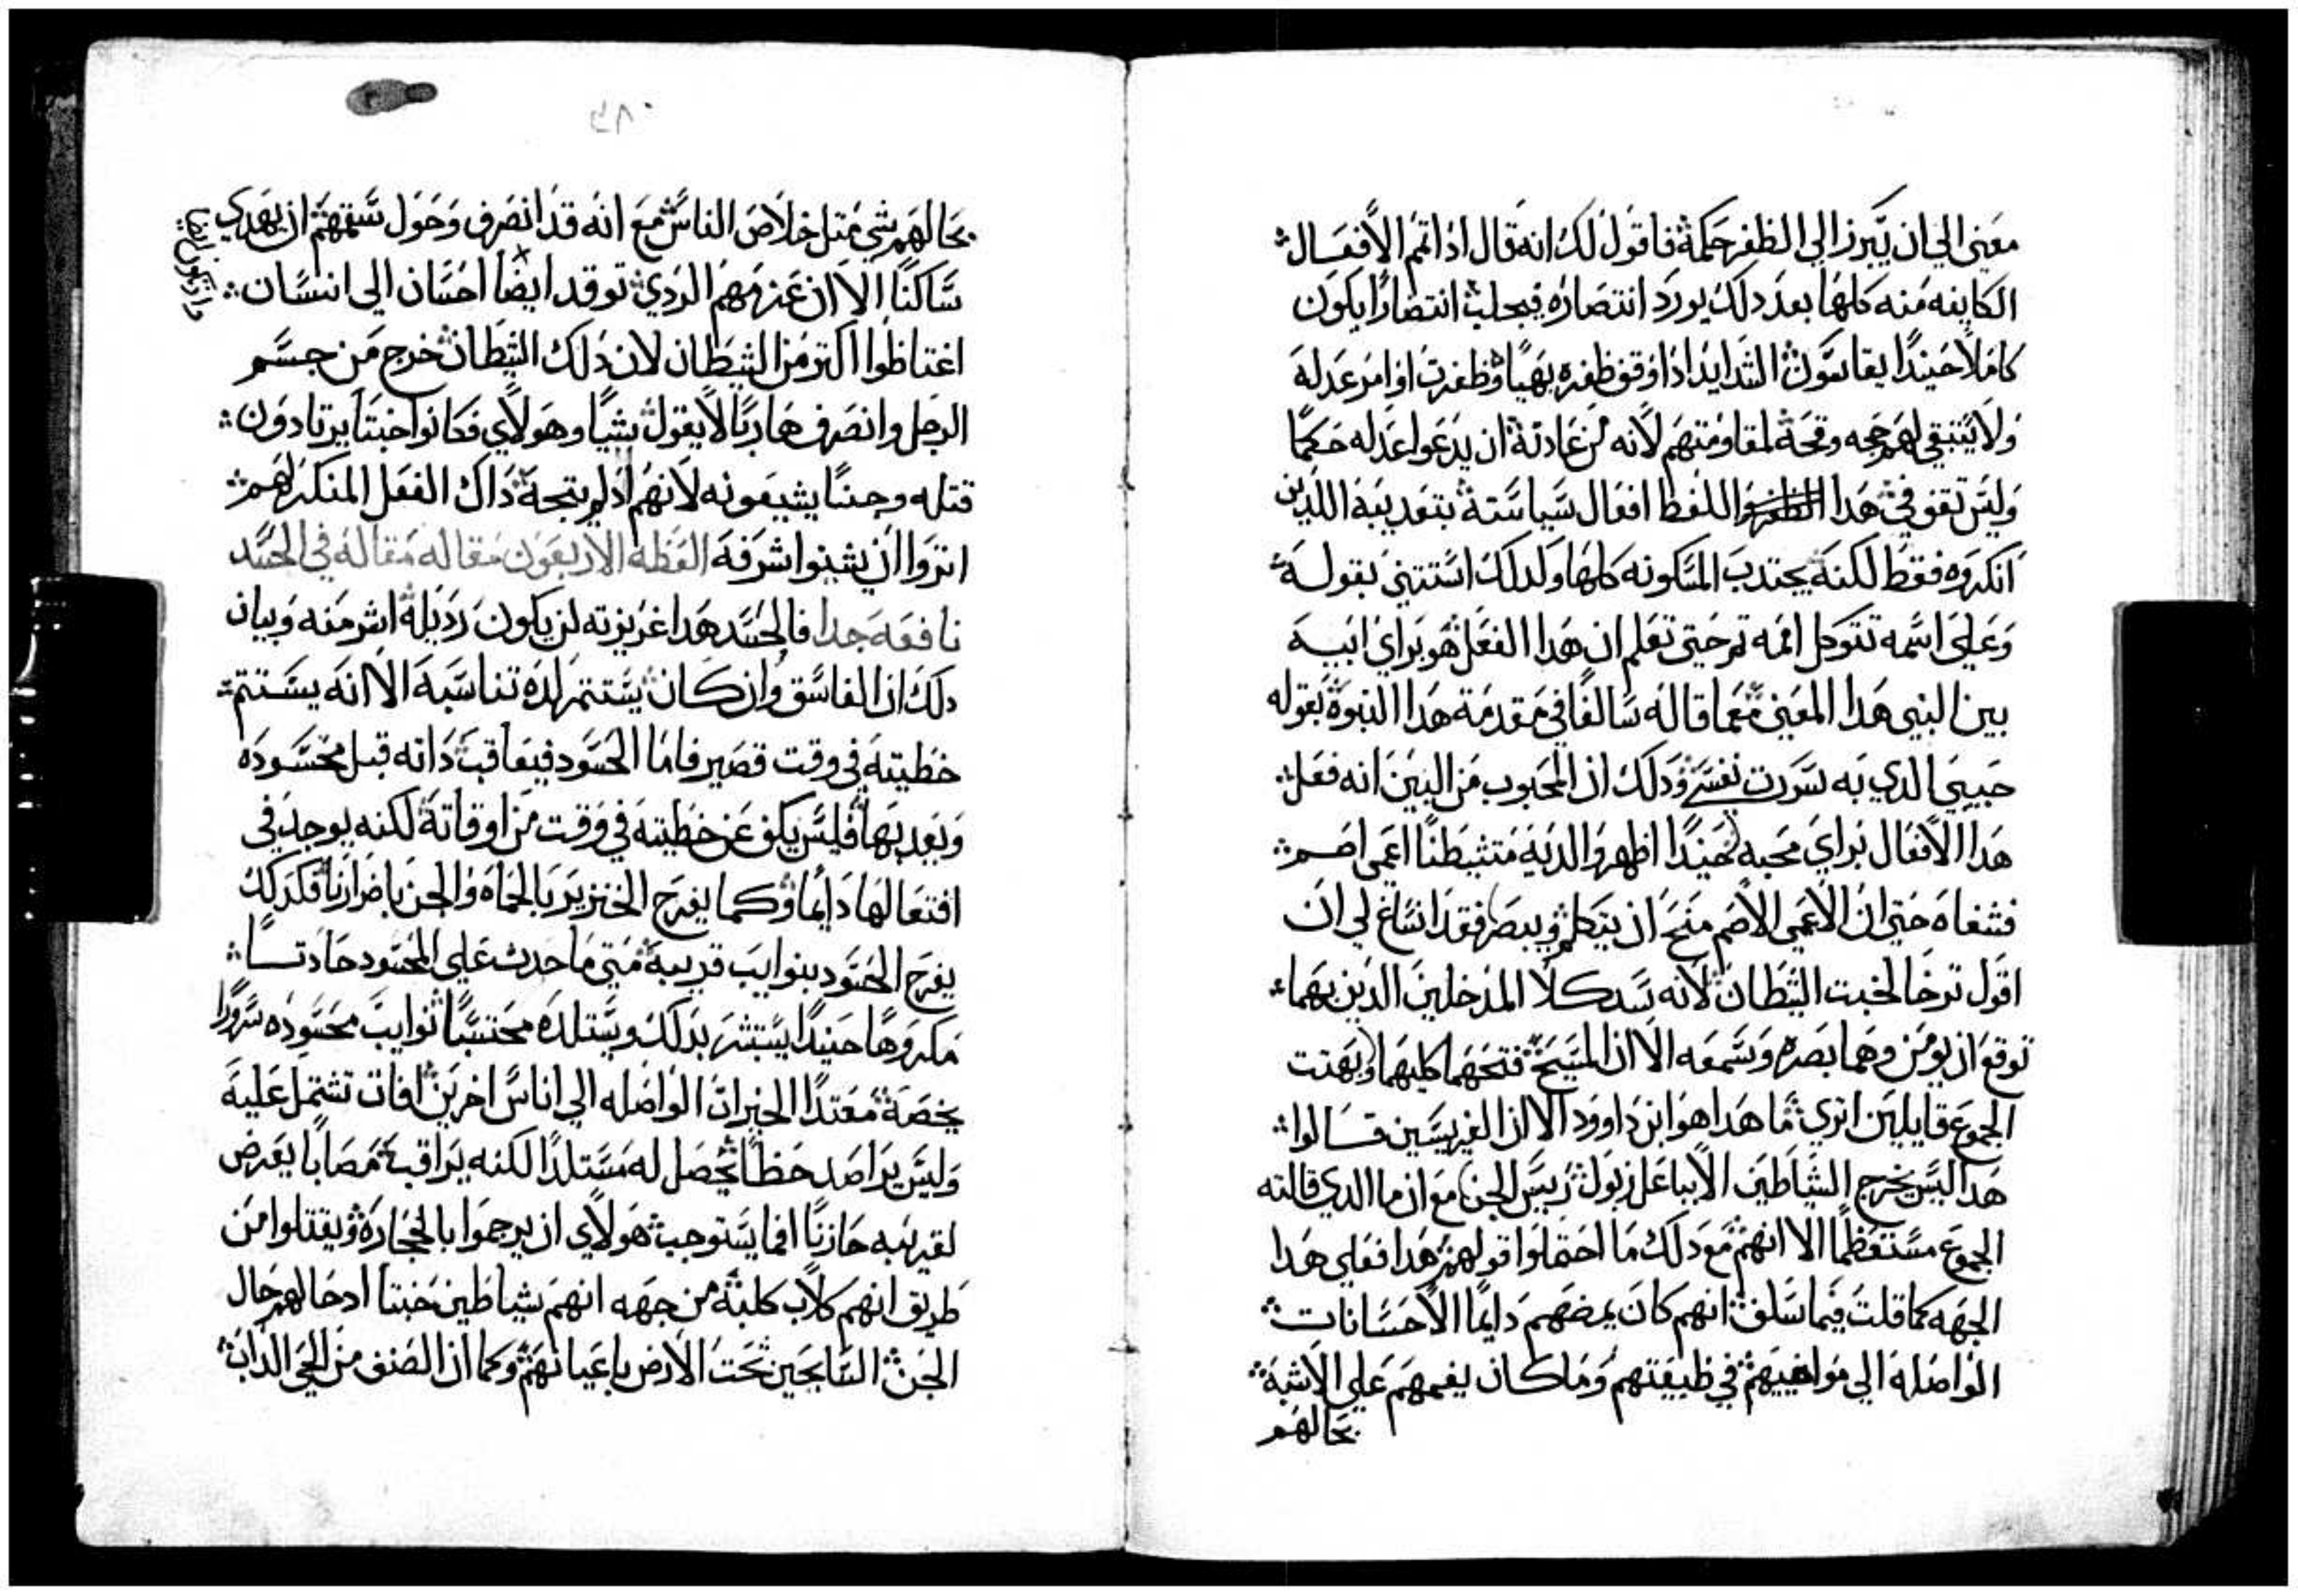 معنى الي ان يبرز الي الظفر حكمة فاقول لك انه قال اذا تمم الافعال
الكاينه منه كلها بعد دلك يورد انتصاره فيجلب انتصارًا يكون
كاملًا حينيدًا يقاسون الشدايد ادا اوقف ظفره بهيًا وظفرت اوامر عدله
ولا يتبقي لهم حجه وقحة لمقاومتهم لانه من عادتة ان يدعوا عدله حكمًا
وليس تقف في هدا اللفظ افعال سياستة بتعديبة اللدين
انكروه فقط لكنه يجتدب المسكونه كلها ولدلك استتني بقوله
وعلي اسمه تتوكل امه تم حتي تعلم ان هدا الفعل هو براي ابيه
بين النبي هدا المعني مع ما قاله سالفًا في مقدمة هدا النبوة بقوله
حبيبي الدي به سرت نفسي ودلك ان المحبوب من البين انه فعل
هدا الافعال براي محبه حينيدًا اظهروا لديه متشيطنًا اعمي اصم
فشفاه حتي ان الاعمي الاصم منح ان يتكلم ويبصر فقد انساغ لي ان
اقول ترخا لخبت الشيطان لانه سد كلا المدخلين الدين بهما
توقع ان يومن وهما بصره وسمعه الا ان المسيح فتحهما كليهما وبهتت
الجموع قايلين اتري ما هدا هو ابن داوود الا ان الفريسين قالوا
هدا ليس يخرج الشياطين الا بباعل زبول رييس الجن مع ان ما الدي قالته
الجموع مستعظمًا الا انهم مع دلك ما احتملوا قولهم هدا فعلي هدا
الجهه كما قلت فيما سلف انهم كان يمضهم دايمًا الاحسانات
الواصله الي مواخييهم في طبيعتهم وما كان يغمهم علي الاشبة
بحالهم
بحالهم شي متل خلاص الناس مع انه قد انصرف وحول سقمهم ان يهدي
ساكنًا الا ان عزمهم الردي توقد ايضا احسان الي انسان
اغتاظوا اكتر من الشيطان لان دلك الشيطان خرج من جسم
الرجل وانصرف هاربًا لا يقول شيًا وهولاي فكانوا خبتًا يرتادون
قتله وحينًا يشيعونه لانهم اد لم يتجة داك الفعل المنكر لهم
اتروا ان يشينوا شرفه العظه الاربعون مقاله مقاله في الحسد
نافعه جدا فالحسد هدا غريزته لن يكون رديلة اشر منه وبيان
دلك ان الفاسق وان كان يستتمر لده تناسبه الا انه يستتم
خطيته في وقت قصير فاما الحسود فيعاقب داته قبل محسوده
ويعد بها فليس يكف عن خطيته في وقت من اوقاتة لكنه يوجد في
افتعالها دايما وكما يفرح الخنزير بالحماه والجن باضرارنا فكدلك
يفرح الحسود بنوايب قريبة متي ما حدث علي المحسود حادتًا
مكروهًا حينيدًا يستبشر بدلك ويستلده محتسبًا نوايب محسوده سرورًا
يخصه معتدًا الخيرات الواصله الي اناس اخرين افات تشتمل عليه
وليس يراصد حظًا يحصل له مستلدًا لكنه يراقب مصابًا يعرض
لقريبه حازنًا افما يستوجب هولاي ان يرجموا بالحجارة ويقتلوا من
طريق انهم كلاب كلبة من جهه انهم شياطين خبتا ادحالهم حال
الجن السايحين تحت الارض باعيانهم وكما ان الصنف من الحي الداب